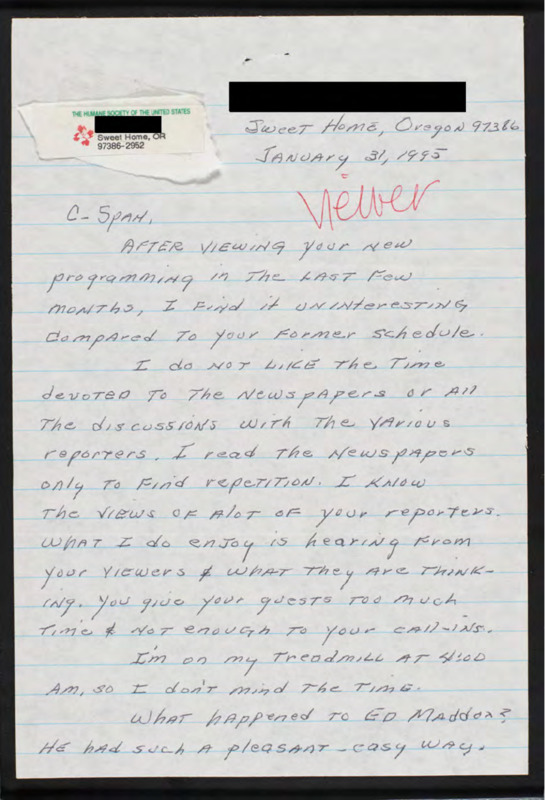 THE HUMANE SOCIETY OF THE UNITED STATES
Sweet Home, OR
97386-2952
Sweet Home, Oregon 97386
January 31, 1995
Viewer
C-Span,
After viewing your new
programming in the last few
months, I find it uninteresting
compared to your former schedule.
I do not like the time
devoted to the newspapers or all
the discussions with the various
reporters. I read the newspapers
only to find repetition. I know
the views of alot of your reporters.
What I do enjoy is hearing from
your viewers & what they are think-
ing. You give your guests too much
time & not enough to your call-ins.
I'm on my treadmill at 4:00
Am, so I don't mind the time.
What happened to Ed Maddox?
He had such a pleasant-easy way.